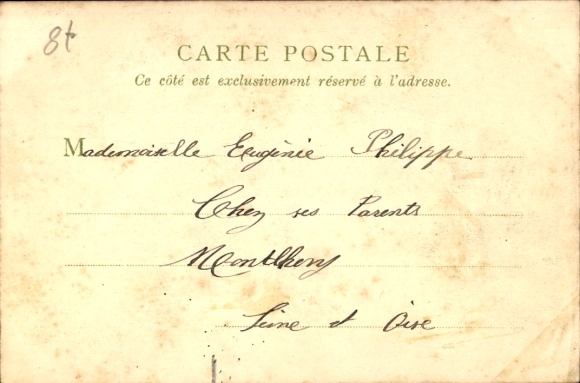 8t
CARTE POSTALE
Ce côté est exclusivement réservé à l'adresse.
Mademoiselle Eugénie Philippe
Chez ses Parents
Montlhery
Seine et Oise